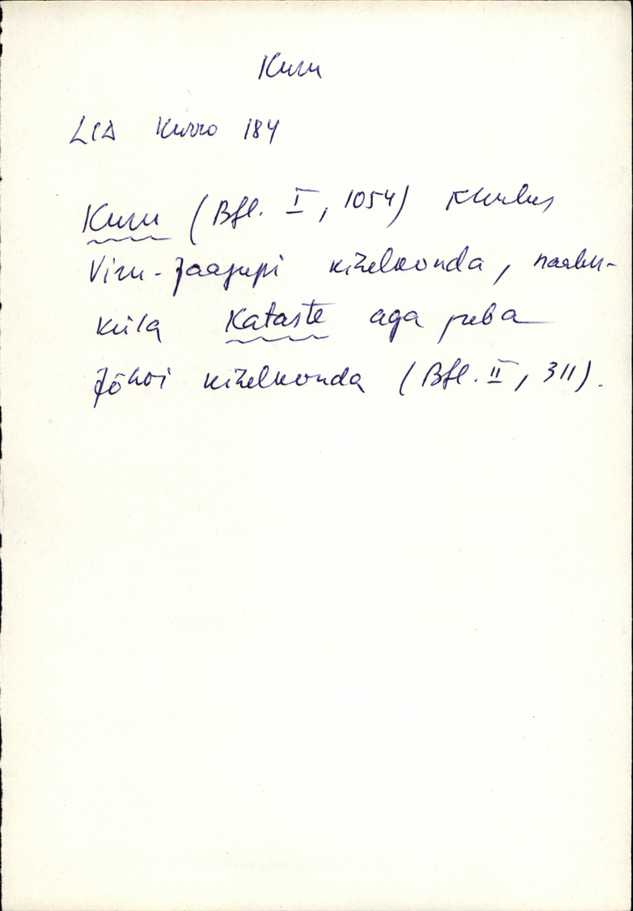 Kuru
LCD Kurro 184
Kuru (Bfl. I, 1054) kuulus
Viru-Jaagupi kihelkonda, naaber-
küla Kataste aga juba
Jõhvi kihelkonda (Bfl. II, 311).